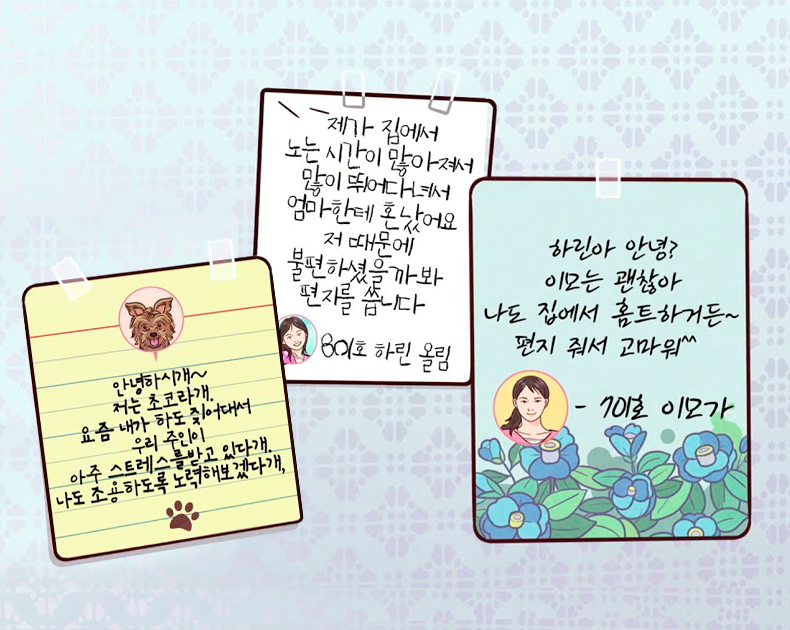 안녕하시개~
저는 초코라개.
요즘 내가 하도 짖어대서
우리 주인이
아주 스트레스를받고 있다개.
나도 조용하도록 노력해보겠다개,
제가 집에서
노는 시간이 많아져서
많이 뛰어다녀서
엄마한테 혼났어요
저 때문에
불편하셨을까봐
편지를 씁니다
801호 하린 올림
하린아 안녕?
이모는 괜찮아
나도 집에서 홈트하거든~
편지 줘서 고마워^^
- 701호 이모가